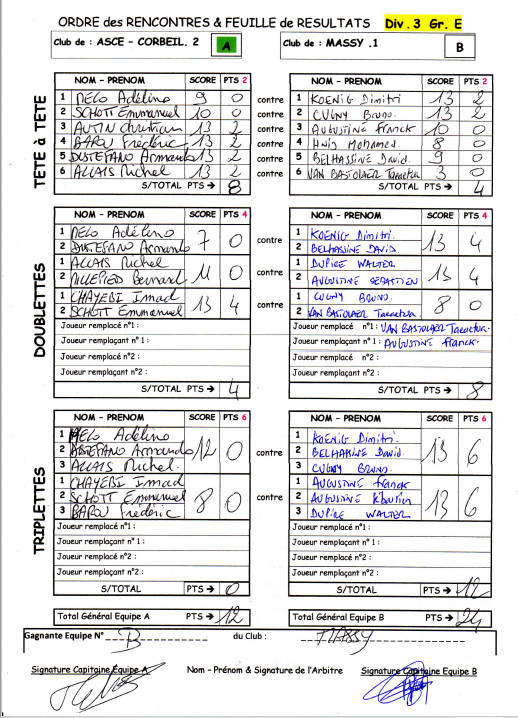 ORDRE des RENCONTRES & FEUILLE de RESULTATS Div. 3 Gr. E
Club de : ASCE - CORBEIL. 2 A Club de : MASSY .1 B
TÊTE à TÊTE
NOM - PRENOM SCORE PTS 2 NOM - PRENOM SCORE PTS 2
1 MELO Adélino 9 0 contre 1 KOENIG Dimitri 13 2
2 SCHOTT Emmanuel 10 0 contre 2 CUGNY Bruno. 13 2
3 AUTIN Christian 13 2 contre 3 AUGUSTINE Franck 10 0
4 BAROU Frédéric 13 2 contre 4 HNID Mohamed. 8 0
5 DISTEFANO Armando 13 2 contre 5 BELHASSINE David. 9 0
6 ALLAIS Michel 13 2 contre 6 VAN BASTOLAER 3 0
S/TOTAL PTS → 8 S/TOTAL PTS → 4
DOUBLETTES
NOM - PRENOM SCORE PTS 4 NOM - PRENOM SCORE PTS 4
1 MELO Adélino 7 0 contre 1 KOENIG Dimitri. 13 4
2 DISTEFANO Armando 2 BELHASSINE DAVID.
1 ALLAIS Michel 11 0 contre 1 DUPIRE WALTER 13 4
2 MILLEPIED Bernard 2 AUGUSTINE SEBASTIEN
1 CHAYEBI Imad 13 4 contre 1 CUGNY BRUNO. 8 0
2 SCHOTT Emmanuel 2 VAN BASTOLAER
Joueur remplacé n°1 : Joueur remplacé n°1 : VAN BASTOLAER
Joueur remplaçant n°1 : Joueur remplaçant n° 1 : AUGUSTINE Franck.
Joueur remplacé n°2 : Joueur remplacé n°2 :
Joueur remplaçant n°2 : Joueur remplaçant n°2 :
S/TOTAL PTS → 4 S/TOTAL PTS → 8
TRIPLETTES
NOM - PRENOM SCORE PTS 6 NOM - PRENOM SCORE PTS 6
1 MELO Adélino 12 0 contre 1 KOENIG Dimitri. 13 6
2 DISTEFANO Armando 2 BELHASSINE David.
3 ALLAIS Michel. 3 CUGNY BRUNO.
1 CHAYEBI Imad 8 0 contre 1 AUGUSTINE Franck 13 6
2 SCHOTT Emmanuel 2 AUGUSTINE
3 BAROU Frédéric 3 DUPIRE WALTER
Joueur remplacé n°1 : Joueur remplacé n°1 :
Joueur remplaçant n°1 : Joueur remplaçant n° 1 :
Joueur remplacé n°2 : Joueur remplacé n°2 :
Joueur remplaçant n°2 : Joueur remplaçant n°2 :
S/TOTAL PTS → 0 S/TOTAL PTS → 12
Total Général Equipe A PTS → 12 Total Général Equipe B PTS → 24
Gagnante Equipe N° B du Club : MASSY
Signature Capitaine Equipe A Nom - Prénom & Signature de l'Arbitre Signature Capitaine Equipe B